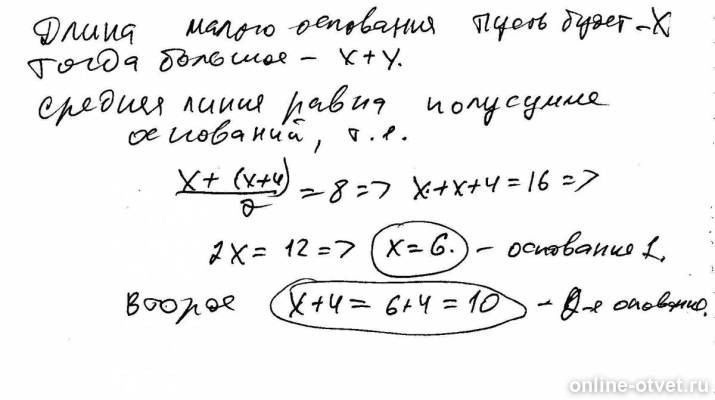 Длина малого основания пусть будет - X
тогда большое - x+4.
средняя линия равна полусумме
оснований, т.е.
x + (x+4) / 2 = 8 => x+x+4 = 16 =>
2x = 12 => x = 6. - основание 1.
второе x+4 = 6+4 = 10 - 2-е основание.
online-otvet.ru